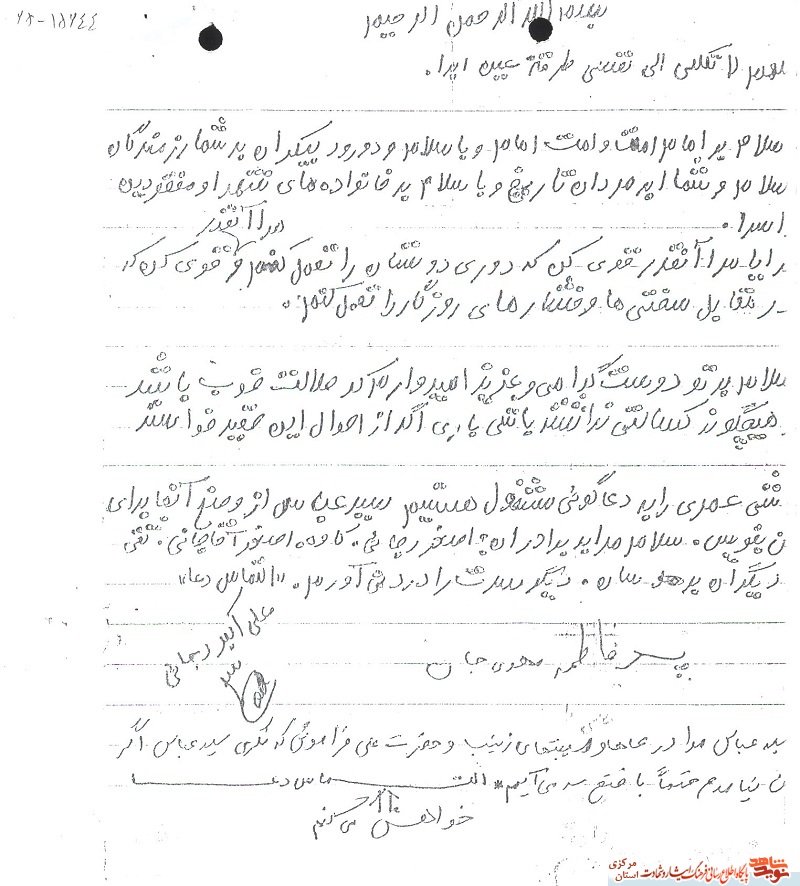 ۲۸-۱۵۷۴۴
بسم الله الرحمن الرحیم
لا تکلنی الی نفسی طرفة عین ابدا.
سلام بر امام امت و امت امام و با سلام و درود بیکران بر شما رزمندگان
سلام و شما ابر مردان تاریخ و با سلام بر خانواده های شهدا و مفقودین
اسرا.
مرا آنقدر
قوی کن که دوری دوستان را تحمل کنم و قوی کن که
در مقابل سختی ها و فشار های روزگار را تحمل کنم.
سلام بر تو دوست گرامی و عزیز امیدوارم که حالت خوب باشد
هیچگونه کسالتی نداشته باشی باری اگر از احوال این حقیر خواسته
باشی عمری را به دعاگوئی مشغول هستیم سید عباس از وضع آنجا برای
من بنویس. سلام مرا به برادران: اصغر رجبائی. کاوه. اصغر آقاجانی. تقی
دیگران برسان. دیگر سرت را درد نمی آورم. "التماس دعا"
علی اکبر رجبائی
پسر فاطمه مهدی جان
سید عباس مرا در دعاها و زینب و حضرت علی فراموش که نکری سید عباس اگر
من نیامدم حتماً با فتح می آییم التماس دعا
خواهش می کنم
نوید شاهد
پایگاه اطلاع رسانی فرهنگ ایثار و شهادت
استان مرکزی